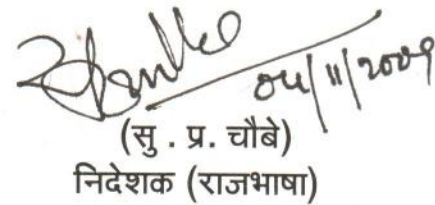 04/11/2009
(सु . प्र. चौबे)
निदेशक (राजभाषा)